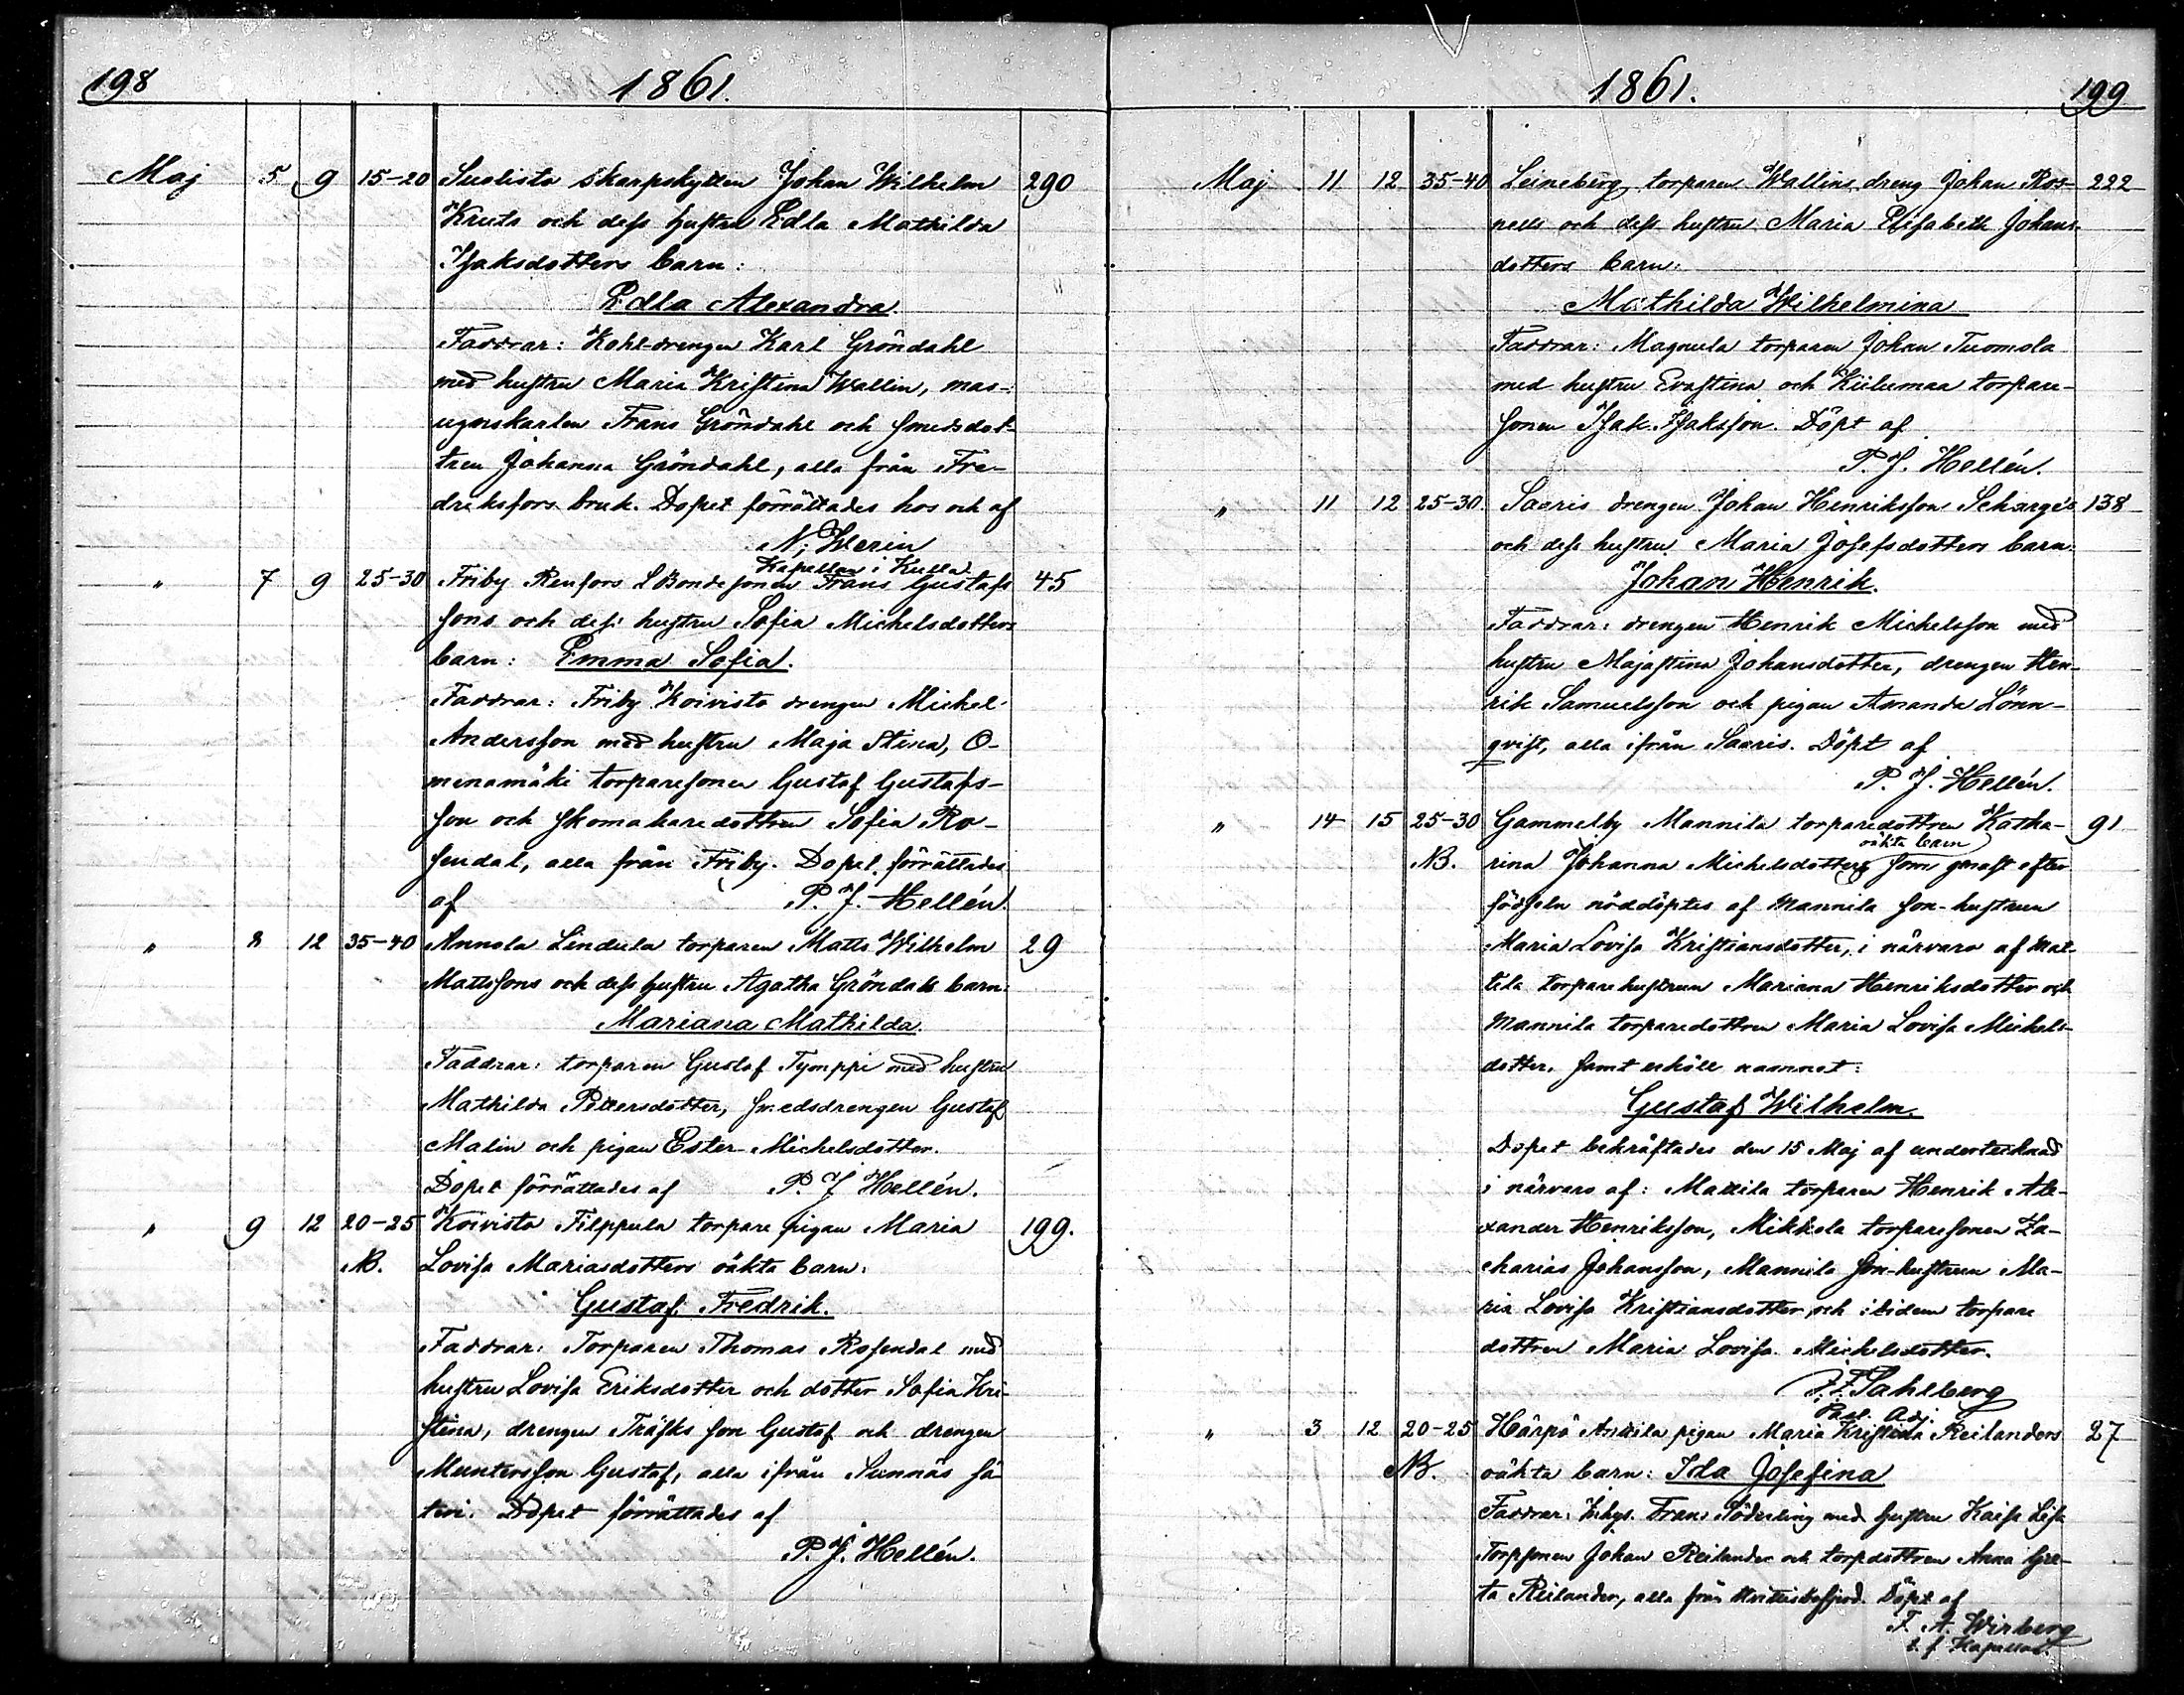 198 1861.
Maj 5 9 15-20 Suolisto skarpskytten Johan Wilhelm 290
Kruts och dess hustru Edla Mathilda
Isaksdotters barn:
Edla Alexandra.
Faddrar: Kohl-drengen Karl Gröndahl
med hustru Maria Kristina Wallin, mas-
ugnskarlen Frans Gröndahl och smedsdot-
tren Johanna Gröndahl, alla från Fre-
driksfors bruk. Dopet förrättades hos och af
N. Werin
Kapellan i Kulla.
" 7 9 25-30 Friby Renfors Bondesonen Frans Gustafs 45
sons och dess hustru Sofia Michelsdotters
barn: Emma Sofia.
Faddrar: Friby Koivisto drengen Michel
Andersson med hustru Maja Stina, O-
menamäki torparesonen Gustaf Gustafs-
son och skomakaredottren Sofia Ro-
sendal, alla från Friby. Dopet förrättades
af P. J. Hellén.
" 8 12 35-40 Annola Lindula torparen Matts Wilhelm 29
Mattssons och dess hustru Agatha Gröndals barn:
Mariana Mathilda.
Faddrar: torparen Gustaf Tymppi med hustru
Mathilda Pettersdotter, smedsdrengen Gustaf
Malin och pigan Ester Michelsdotter.
Dopet förrättades af P. J. Hellén.
" 9 12 20-25 Koivisto Filppula torpare pigan Maria 199.
NB. Lovisa Mariasdotters oäkta barn:
Gustaf Fredrik.
Faddrar: Torparen Thomas Rosendal med
hustru Lovisa Eriksdotter och dotter Sofia Kri-
stina, drengen Träsks son Gustaf och drengen
Muntersson Gustaf, alla ifrån Sunnäs sä-
teri. Dopet förrättades af
P. J. Hellén.
1861. 199
Maj 11 12 35-40 Leineberg torparen Wallins dreng Johan Ros- 222
nells och dess hustru Maria Elisabeth Johans-
dotters barn:
Mathilda Wilhelmina
Faddrar: Magnula torparen Johan Tuomola
med hustru Evastina och Kiilumaa torpare-
sonen Isak Isaksson. Döpt af
P. J. Hellén.
" 11 12 25-30 Saaris drengen Johan Henriksson Schargés 138
och dess hustru Maria Josefsdotters barn:
Johan Henrik.
Faddrar: drengen Henrik Michelsson med
hustru Majastina Johansdotter, drengen Hen-
rik Samuelsson och pigan Amanda Lönn-
qvist, alla ifrån Saaris. Döpt af
P. J. Hellén.
" 14 15 25-30 Gammelby Mannila torparedottren Katha- 91
oäkta barn
NB. rina Johanna Michelsdotters som genast efter
födseln nöddöptes af Mannila son-hustrun
Maria Lovisa Kristiansdotter, i närvaro af Mat-
tila torparehustrun Mariana Henriksdotter och
Mannila torparedottren Maria Lovisa Michels-
dotter. samt erhöll namnet:
Gustaf Wilhelm.
Dopet bekräftades den 15 Maj af undertecknad
i närvaro af: Mattila torparen Henrik Ale-
xander Henriksson, Mikkola torparesonen Za-
charias Johansson, Mannila son-hustrun Ma-
ria Lovisa Kristiansdotter och itidem torpare
dottren Maria Lovisa Michelsdotter.
F. F. Sahlberg
Past. Adj.
" 3 12 20-25 Härpö Anttila pigan Maria Kristina Reilanders 27
NB. oäkta barn: Ida Josefina
Faddrar: Inhys. Frans Söderling med hustru Kaisa Lisa
Torpsonen Johan Reilander och torpdottren Anna Gre-
ta Reilander, alla från Döpt af
F. A. Wirberg
t. f. Kapellan.